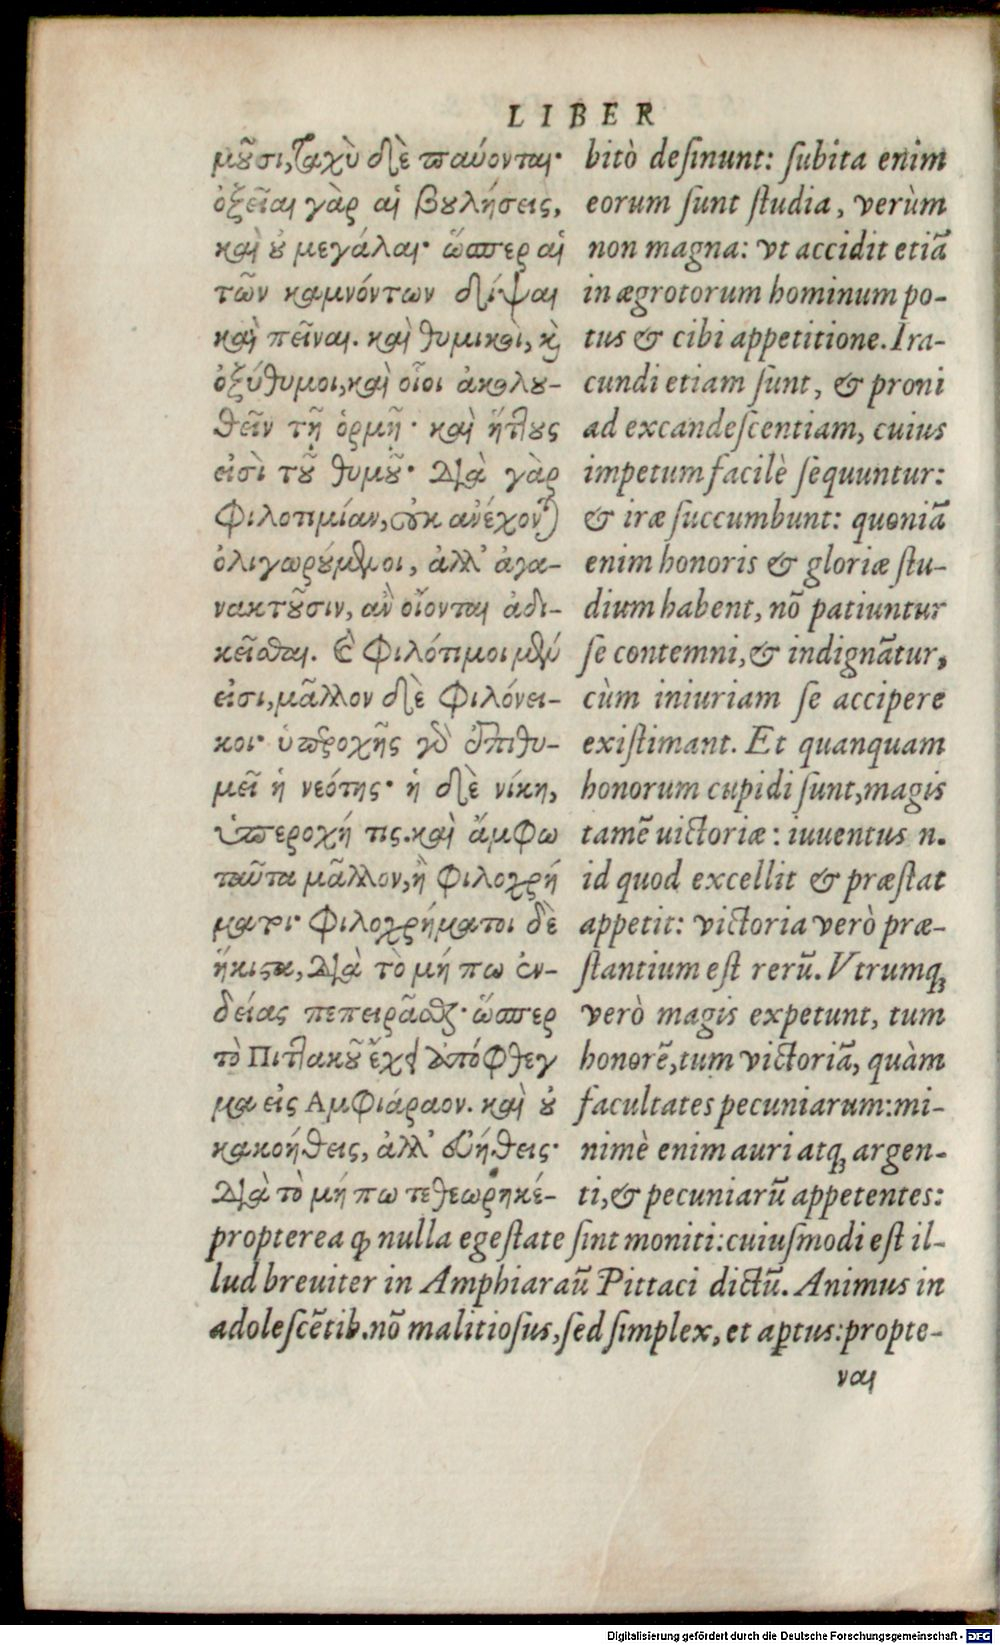 LIBER
μοῦσι, ταχὺ δὲ παύονται·
ὀξεῖαι γὰρ αἱ βουλήσεις,
καὶ οὐ μεγάλαι· ὥσπερ αἱ
τῶν καμνόντων δίψαι
καὶ πεῖναι. καὶ θυμικοὶ, καὶ
ὀξύθυμοι, καὶ οἷοι ἀκολου-
θεῖν τῇ ὁρμῇ· καὶ ἥττους
εἰσὶ τοῦ θυμοῦ· Διὰ γὰρ
Φιλοτιμίαν, οὐκ ἀνέχονται
ὀλιγωρούμενοι, ἀλλ' ἀγα-
νακτοῦσιν, ἂν οἴονται ἀδι-
κεῖσθαι. Καὶ Φιλότιμοι μέν
εἰσι, μᾶλλον δὲ Φιλόνει-
κοι· ὑπεροχῆς γὰρ ἐπιθυ-
μεῖ ἡ νεότης· ἡ δὲ νίκη,
ὑπεροχή τις. καὶ ἄμφω
ταῦτα μᾶλλον, ἢ Φιλοχρή
ματοι· Φιλοχρήματοι δὲ
ἥκιστα, Διὰ τὸ μή πω ἐν-
δείας πεπειρᾶσθαι· ὥσπερ
τὸ Πιττακοῦ ἔχει ἀπόφθεγ
μα εἰς Αμφιάραον. καὶ οὐ
κακοήθεις, ἀλλ' εὐήθεις·
Διὰ τὸ μή πω τεθεωρηκέ-
bitò desinunt: subita enim
eorum sunt studia, verùm
non magna: vt accidit etiã
in ægrotorum hominum po-
tus & cibi appetitione. Ira-
cundi etiam sunt, & proni
ad excandescentiam, cuius
impetum facilè sequuntur:
& iræ succumbunt: quoniã
enim honoris & gloriæ stu-
dium habent, nõ patiuntur
se contemni, & indignãtur,
cùm iniuriam se accipere
existimant. Et quanquam
honorum cupidi sunt, magis
tamẽ uictoriæ: iuuentus n.
id quod excellit & præstat
appetit: victoria verò præ-
stantium est rerũ. Vtrumq;
verò magis expetunt, tum
honorẽ, tum victoriã, quàm
facultates pecuniarum: mi-
nimè enim auri atq; argen-
ti, & pecuniarũ appetentes:
propterea ꝙ nulla egestate sint moniti: cuiusmodi est il-
lud breuiter in Amphiaraũ Pittaci dictũ. Animus in
adolescẽtib. nõ malitiosus, sed simplex, et aꝑtus: propte-
ναι
Digitalisierung gefördert durch die Deutsche Forschungsgemeinschaft - DFG